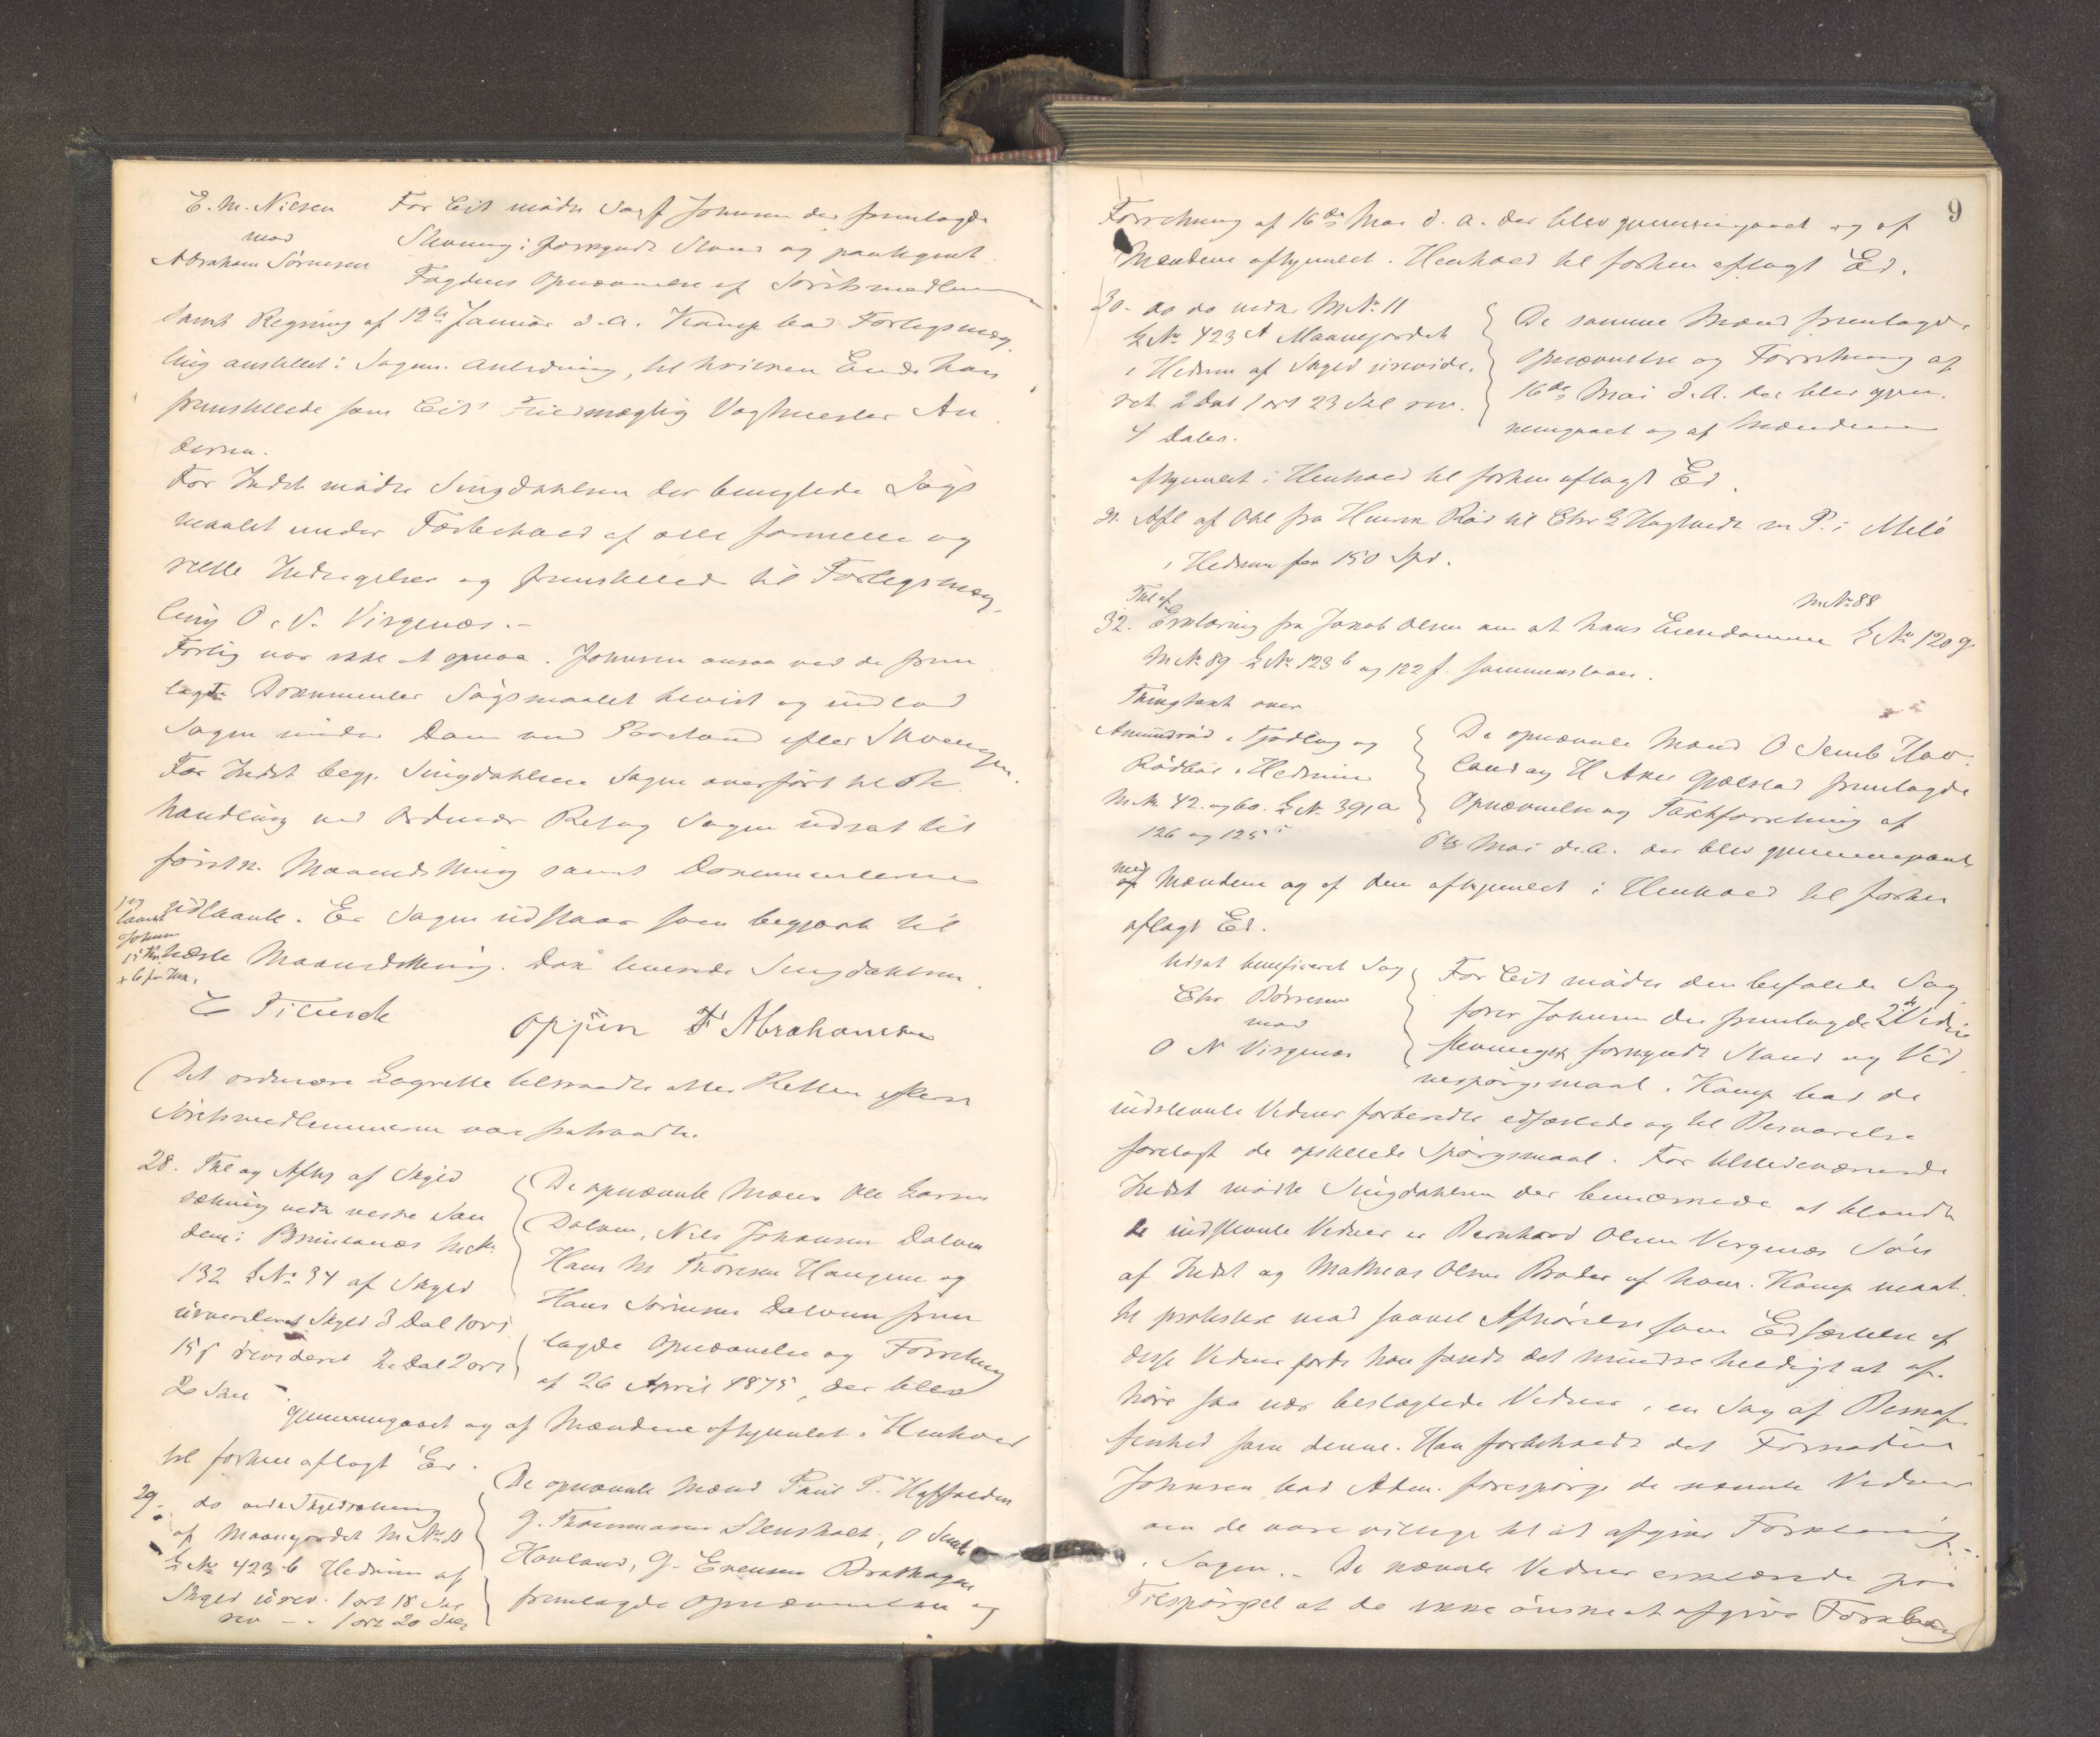 E. M. Nilsen
mod
Abraham Sörensen
For Cit mödte Sagf Johnsen der fremlagde
Stevning i forkyndt Stand og paategnet
Fogdens Opnævnelse af Söretsmedlemmer
samt Regning af 12te Januar d. A. Komp bad Forligsmæg
ling anstillet i Sagens Anledning, til hvilken Ende han
fremstillede som Cits Fuldmægtig Vagtmester An
dersen.
For Indst mödte Lingdahlsen der benegtede Sögs
maalet under Forbehold af alle formelle og
reelle Indsigelser og fremstillede til Forligsmæg
ling O. N. Virgenæs.
Forlig var ikke at opnaa. Johnsen ansaa ved de frem
lagte Documenter Sögsmaalet bevist og indlod
Sagen under Dom med Paastand efter Stevningen.
For Indst begj. Lingdahlsen Sagen overfört til Be
handling ved ordinær Ret og Sagen udsat til
förstk. Maanedsthing samt Documenterne
udlaante. Er Sagen udstaar som begjært til
næste Maanedsthing. Dok leverede Lingdahlsen.
F Abrahamsen
Det ordinære Lagrette tiltraadte atter Retten efterat
Söretsmedlemmerne var fratraadte.
28. Thl og Afhj af Skyld
sætning vedk vestre San
dene i Brunlanæs M No
132 L No 34 af Skyld
urevideret Skyld 3 Dal 1 ort
15 s revideret 2 Dal 2 ort
20 Sk
De opnævnte Mænd Ole Larsen
Dolven, Nils Johansen Dolven
Hans M Thoresen Haugene og
Hans Sörensen Dolven frem
lagde Opnævnelse og Forretning
af 26 April 1875, der blev
gjennemgaaet og af Mændene afhjemlet i Henhold
til forhen aflagt Ed.
29. do vedk Skyldsætning
af Maanejordet M No 11
L No 423 b Hedrum af
Skyld urev. 1 ort 18 Sk
rev - - 1 ort 20 Sk
De opnævnte Mænd Paul T.
G. Thommasen Stensholt, O Semb
Havland, G. Evensen Brathagen
fremlagde Opnævnelse og
9
Forretning af 16de Mai d. A. der blev gjennemgaaet og af
Mændene afhjemlet i Henhold til forhen aflagt Ed.
30. do do vedk M No 11
L No 423 A Maanejordet
i Hedrum af Skyld urevide
ret 2 Dal 1 ort 23 Skl rev.
4 Daler.
De samme Mænd fremlagde
Opnævnelse og Forretning af
16de Mai d. A. der blev gjen
nemgaaet og af Mændene
afhjemlet i Henhold til forhen aflagt Ed.
31. Afl af Obl fra Röd til Chr L Hagtvedt m P. i Melö
i Hedrum for 150 Spd.
Thl af
32. Erklæring fra Jakob Olsen om at hans Eiendomme M No 88 L No 120 g
M No 89 L No 123 b og 122 f. sammenslaaes.
Thingtaxt over
Amundröd i Tjödling og
Rödböl i Hedrum
M No 42. og 60. L No 391 a
126 og 125
De opnævnte Mænd O Semb Hav
land og H Aker Gjælstad fremlagde
Opnævnelse og Taxtforretning af
Mai d. A. der blev gjennemgaaet
med Mændene og af dem afhjemlet i Henhold til forhen
aflagt Ed.
Udsat beneficeret Sag
Chr Börresen
mod
O N Virgenæs
For Cit mödte den befalede Sag
förer Johnsen der fremlagde 2de Vidne
stevninger forkyndt Stand og Vid
nespörgsmaal. Komp bad de
indstevnte Vidner forberedte edfæstede og til Besvarelse
forelagt de opstillede Spörgsmaal. For tilstedeværende
Indst mödte Lingdahlsen der bemærkede at blandt
de indstevnte Vidner er Bernhard Olsen Virgenæs Sön
af Indst og Mathias Olsen Broder af ham. Komp maat
te protestere mod saavel Afhörelse som Edfæstelse af
disse Vidner fordi han fandt det mindre heldigt at af
höre saa nær beslægtede Vidner i en Sag af Beskaf
fenhed som denne. Han forbeholdt det Fornödne
Johnsen bad Adm. forespörge de nævnte Vidner
om de vare villige til at afgive Forklaring
i Sagen. - De nævnte Vidner erklærede paa
Tilspörgsel at de ikke önske at afgive Forklaring